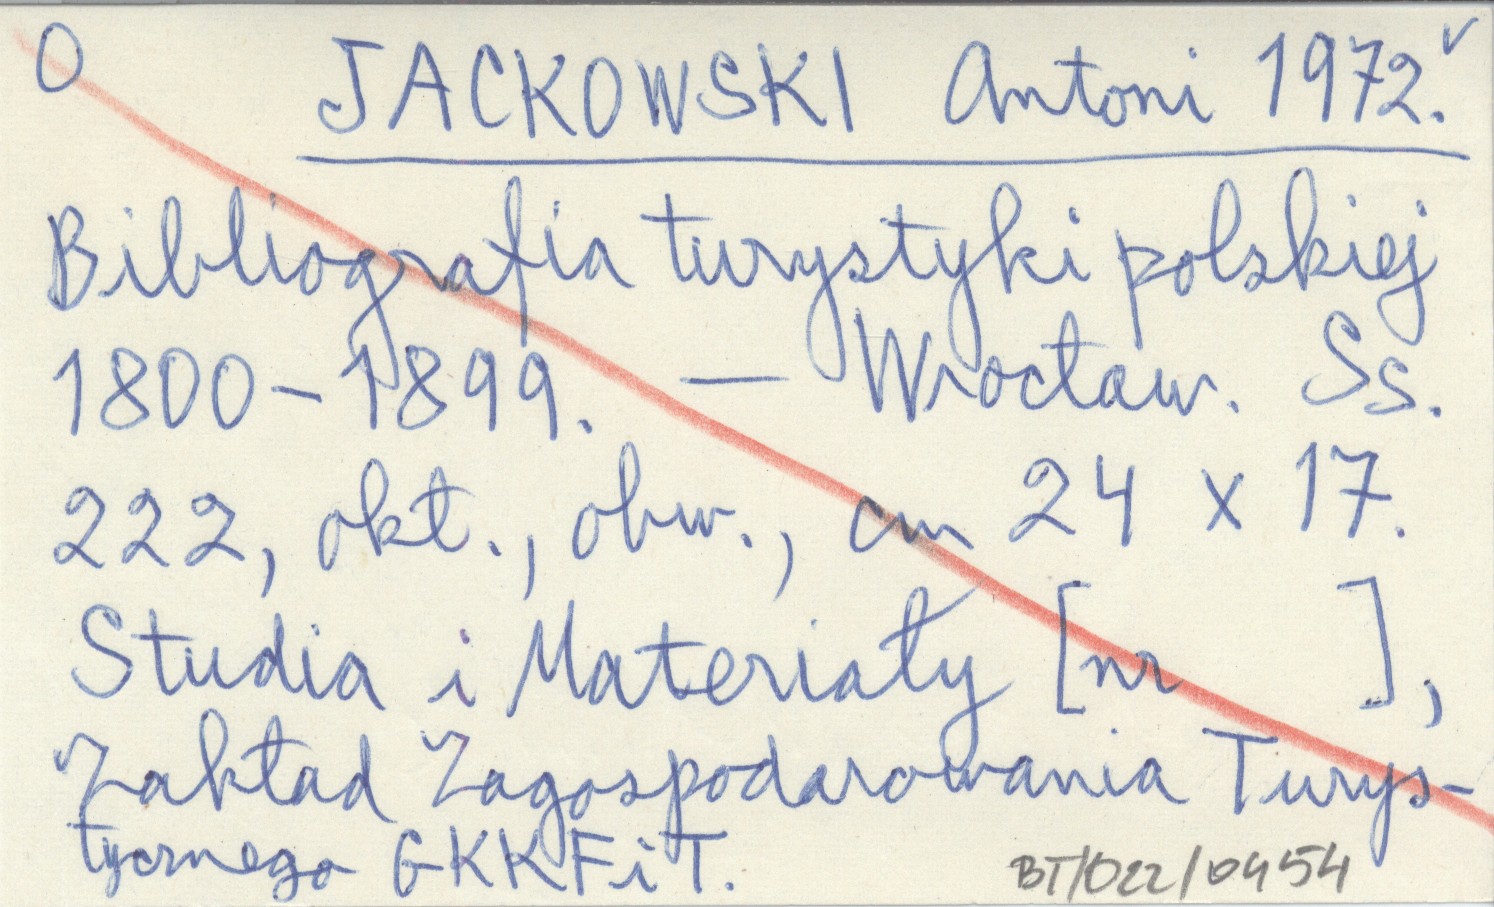 O JACKOWSKI Antoni 1972. v
Bibliografia turystyki polskiej
1800-1899. — Wrocław. Ss.
222, okł., obw., cm 24 x 17.
Studia i Materiały [nr ],
Zakład Zagospodarowania Turys-
tycznego GKKFiT.
BT/022/0454